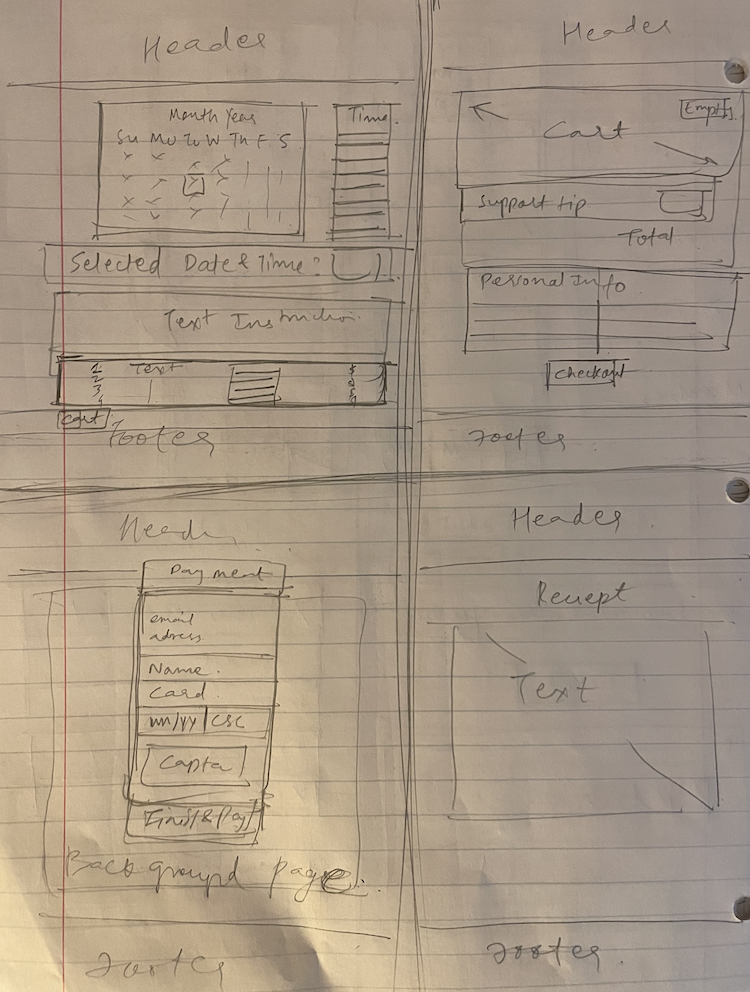 Header
Month Year
Su Mo Tu W Th F S
Time
Selected Date & Time:
Text Instruction
1 Text $
2
3
4
Cart
Footer
Header
Empty
Cart
Support tip
Total
Personal Info
Checkout
Footer
Header
Payment
email
adress
Name
Card
mm/yy CSC
Capta
Finish & Pay
Background page
Footer
Header
Reciept
Text
Footer